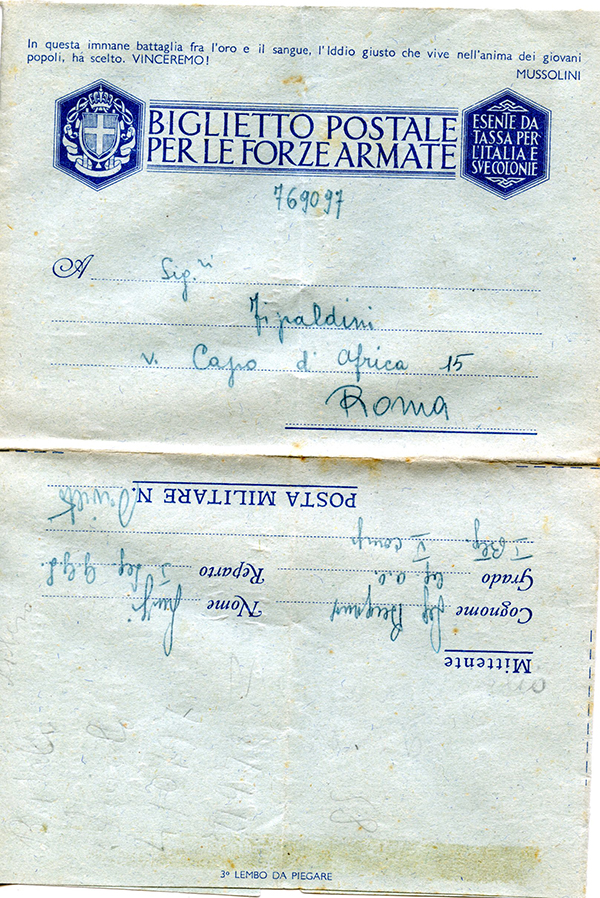 In questa immane battaglia fra l'oro e il sangue, l'Iddio giusto che vive nell'anima dei giovani
popoli, ha scelto. VINCEREMO!
MUSSOLINI
BIGLIETTO POSTALE
PER LE FORZE ARMATE
ESENTE DA
TASSA PER
L'ITALIA E
SVE COLONIE
769097
A Sig.ri
Zipaldini
v. Capo d'Africa 15
Roma
Mittente
Cognome Nome Luigi
Grado Reparto
I Btg. V comp
POSTA MILITARE N.
3º LEMBO DA PIEGARE